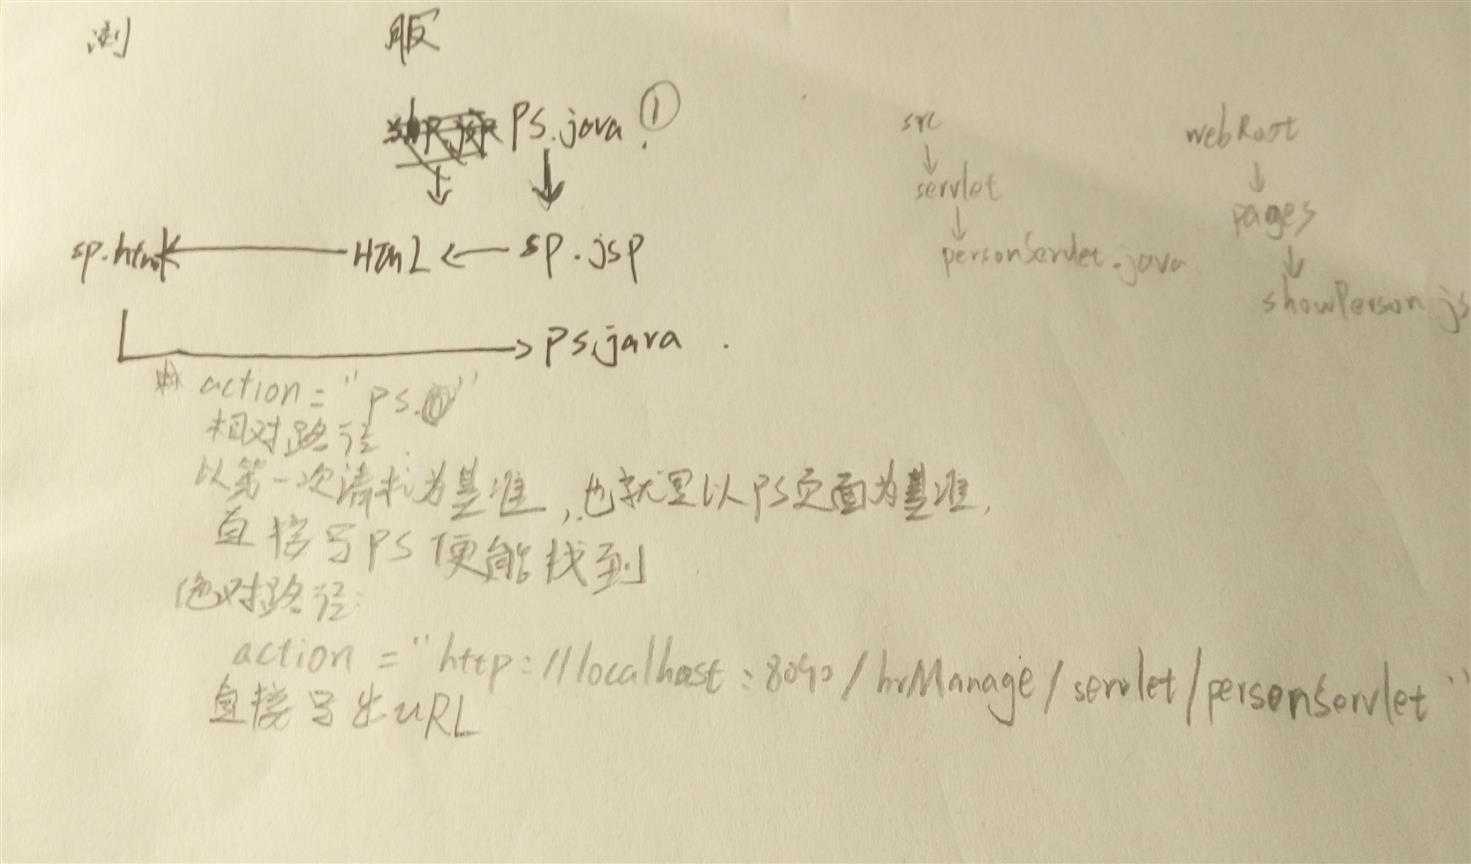 浏 服
PS.java ①
sp.html HTML sp.jsp
PS.java
src
servlet
personServlet.java
webRoot
pages
showPerson.js
action = "PS."
相对路径
以第一次请求为基准,也就是以PS页面为基准,
直接写PS便能找到
绝对路径:
action = "http://localhost:8090/hrManage/servlet/personServlet"
直接写出URL